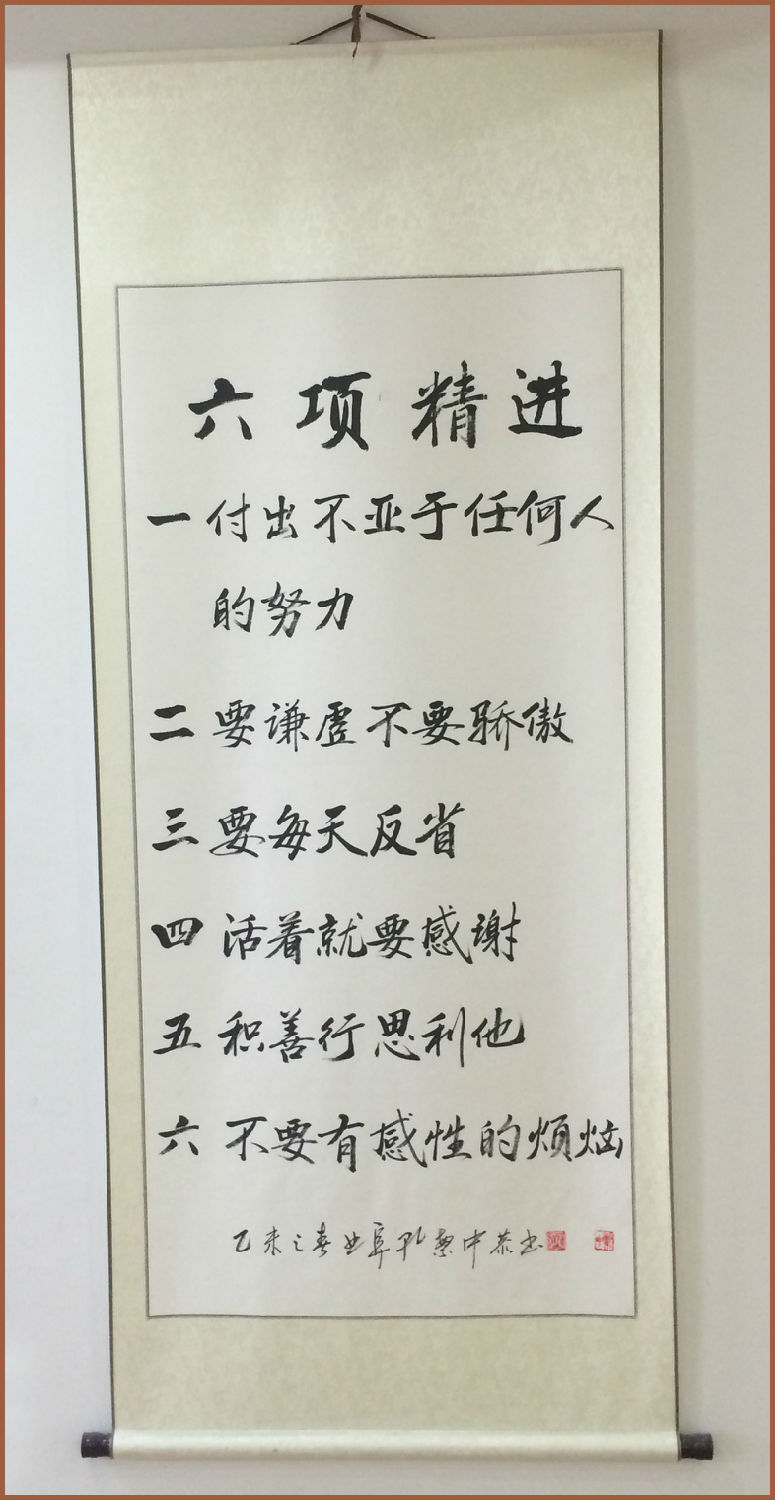 六项精进
一 付出不亚于任何人
的努力
二 要谦虚不要骄傲
三 要每天反省
四 活着就要感谢
五 积善行思利他
六 不要有感性的烦恼
乙未之春曲阜孔惠中恭书